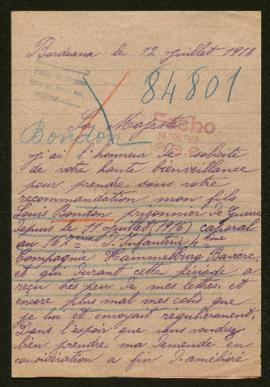 Bordeaux le 12 Juillet 1918
84801
Sa Majesté
Boudon
j'ai l'honneur de solicité
de votre haute bienveillance
pour prendre sous votre
recommandation mon fils
Louis Boudon prisonnier de Guerre
depuis le 11 Juillet (1916) caporal
au d'Infanterie 4 ème
Compagnie Hammelburg Baviere
et qui durant cette période a
reçu très peu de mes lettres et
encore plus mal mes colis que
je lui et envoyait regulièrement.
Dans l'espoir que vous voudrez
bien prendre ma demande en
considération a fin d'amélioré